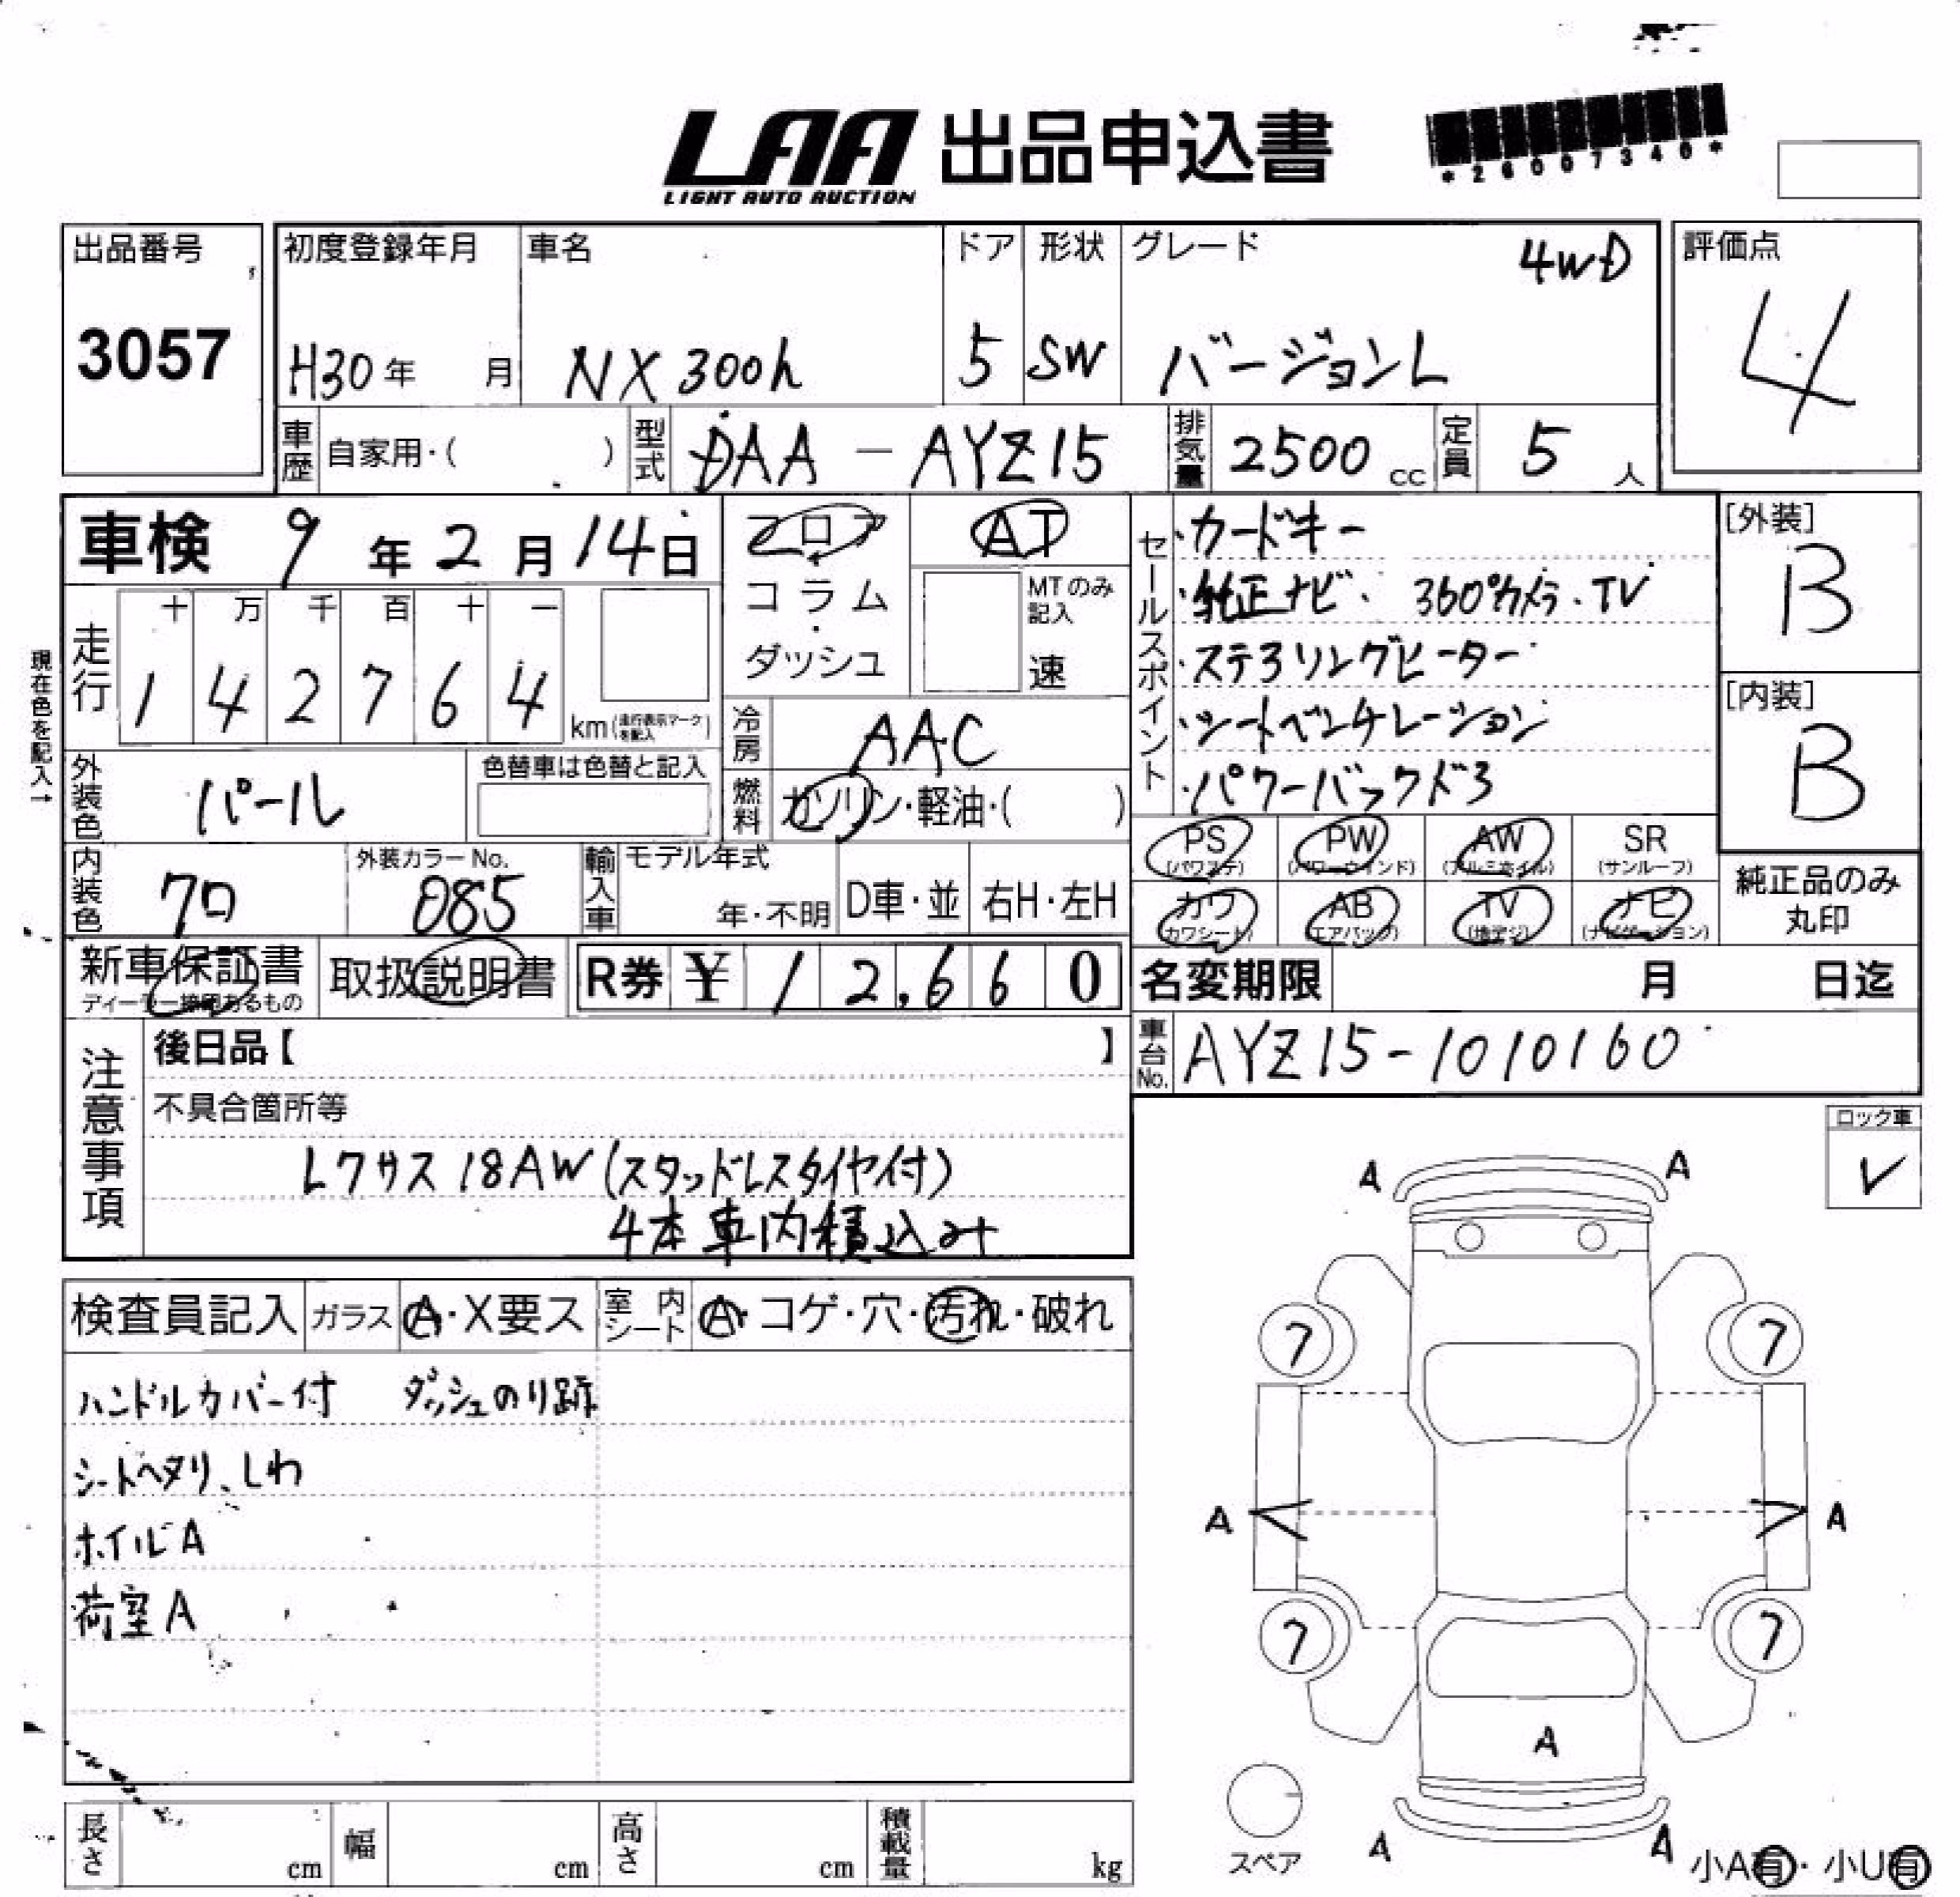 LAA 出品申込書
LIGHT AUTO AUCTION
*26007340*
出品番号
3057
初度登録年月
H30年 月
車名
NX 300h
ドア
5
形状
SW
グレード 4WD
バージョンL
評価点
4
車歴 自家用・( )
型式 DAA-AYZ15
排気量 2500 cc
定員 5 人
車検 9年2月14日
現在色を記入→
走行
十 万 千 百 十 一
1 4 2 7 6 4 km(走行表示マークを記入)
フロア
コラム
ダッシュ
AT
MTのみ記入
速
冷房 AAC
燃料 ガソリン・軽油・( )
セールスポイント
・カードキー
・純正ナビ、360°カメラ・TV
・ステヨリングヒーター
・シートベンチレーション
・パワーバックドヨ
[外装]
B
[内装]
B
外装色 パール
色替車は色替と記入
内装色 クロ
外装カラーNo.
085
輸入車 モデル年式
年・不明
D車・並
右H・左H
PS (パワステ)
PW (パワーウインド)
AW (アルミホイル)
SR (サンルーフ)
カワ (カワシート)
AB (エアバッグ)
TV (地デジ)
ナビ (ナビゲーション)
純正品のみ
丸印
新車保証書
取扱説明書
R券 ¥ 12,660
名変期限 月 日迄
車台No. AYZ15-1010160
注意事項
後日品【 】
不具合箇所等
レクサス18AW(スタッドレスタイヤ付)
4本車内積込み
ロック車
✓
検査員記入
ガラス A・X要ス
室内シート A・コゲ・穴・汚れ・破れ
ハンドルカバー付 ダッシュのり跡
シートヘタリ、しわ
ホイルA
荷室A
A A
7 7
A A
7 7
A
A A
スペア
小A有・小U有
長さ cm
幅 cm
高さ cm
積載量 kg